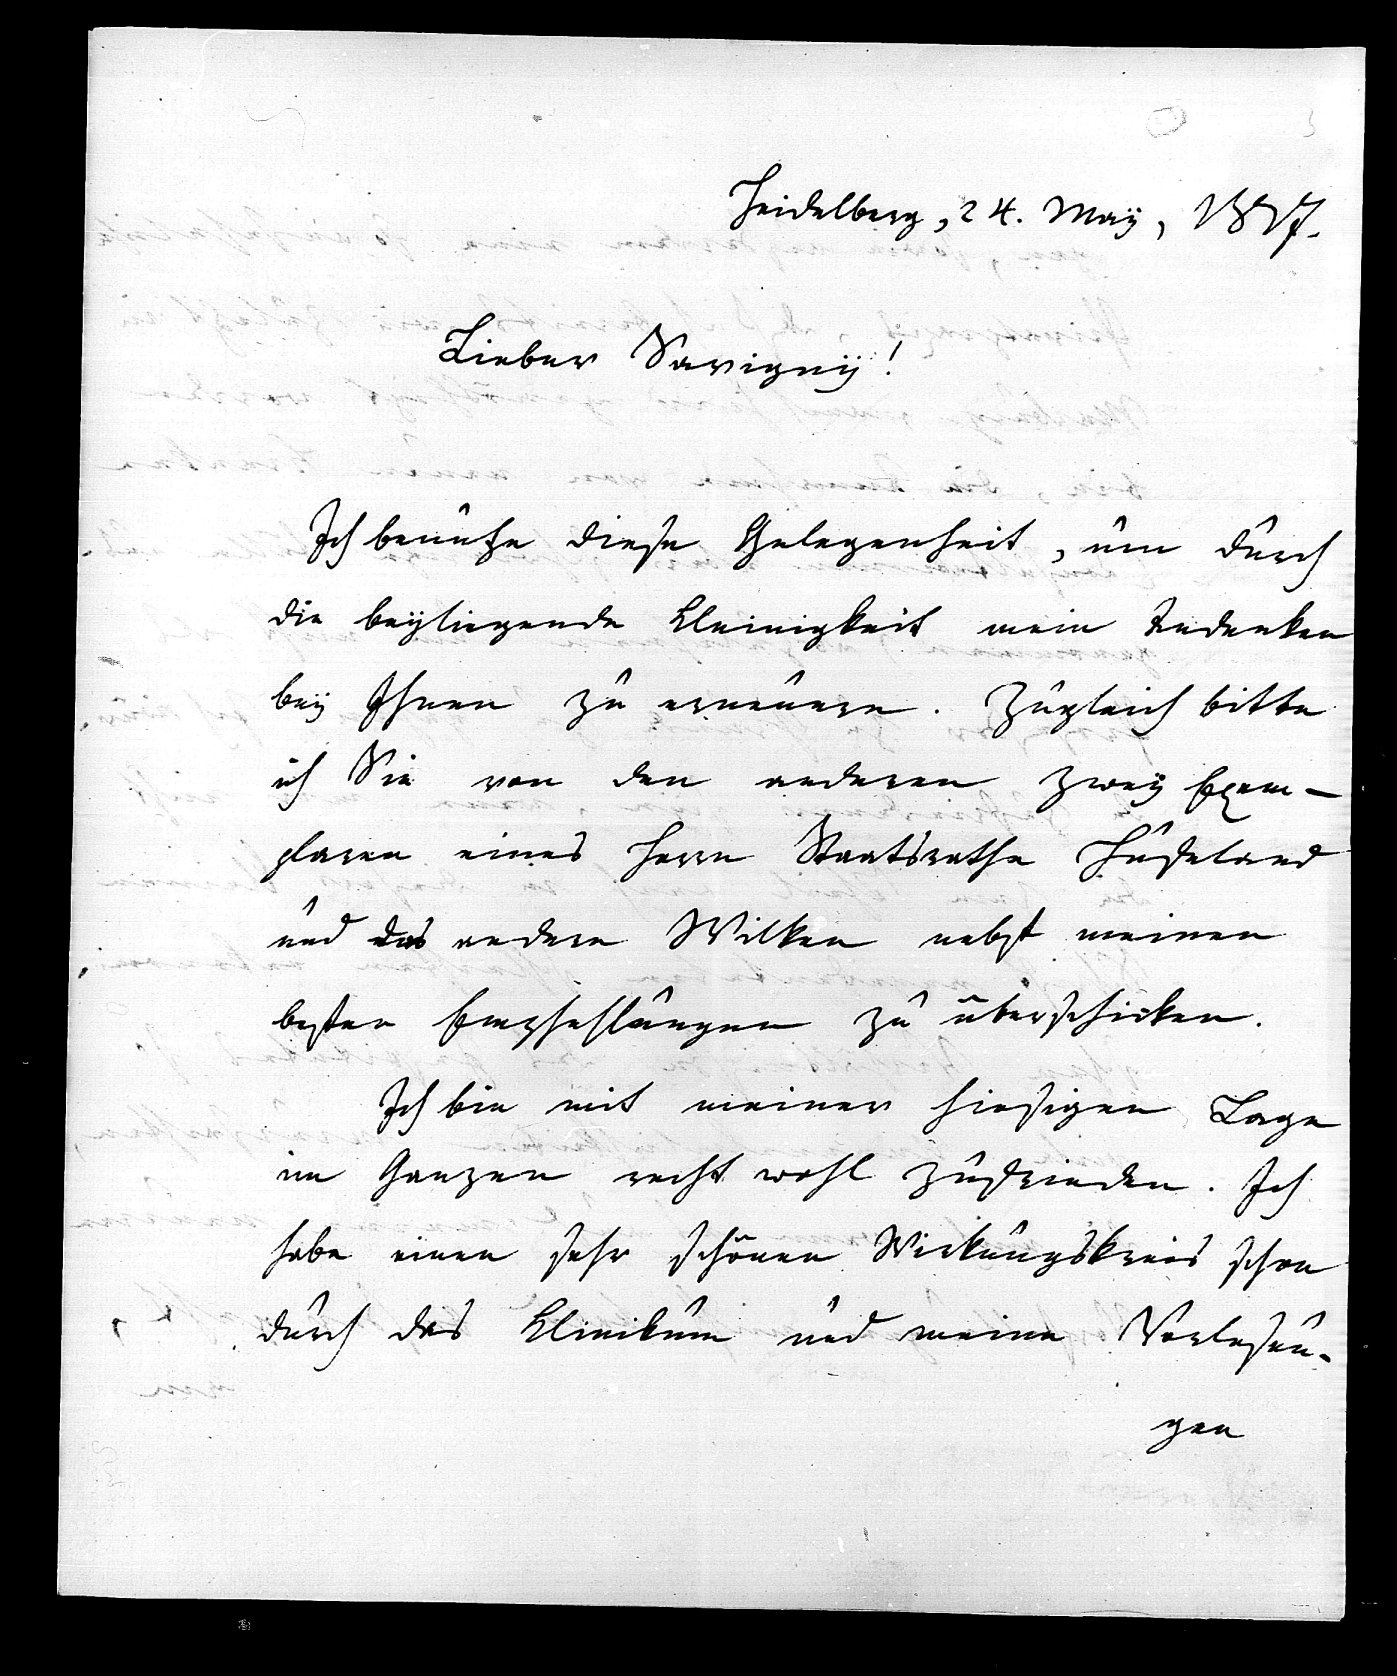 Heidelberg, 24. Maÿ, 1817.
Lieber Savignÿ!
Ich benutze diese Gelegenheit, um durch
die beÿliegende Kleinigkeit mein Andenken
beÿ Ihnen zu erneuern. Zugleich bitte
ich Sie von den anderen zweÿ Exem-
plaren eines Herrn Staatsrathe Hufeland
und das andere Wilken nebst meinen
besten Empfehlungen zu überschicken.
Ich bin mit meiner hiesigen Lage
im Ganzen recht wohl zufrieden. Ich
habe einen sehr schönen Wirkungskreis schon
durch das Klinikum und meine Vorlesun-
gen